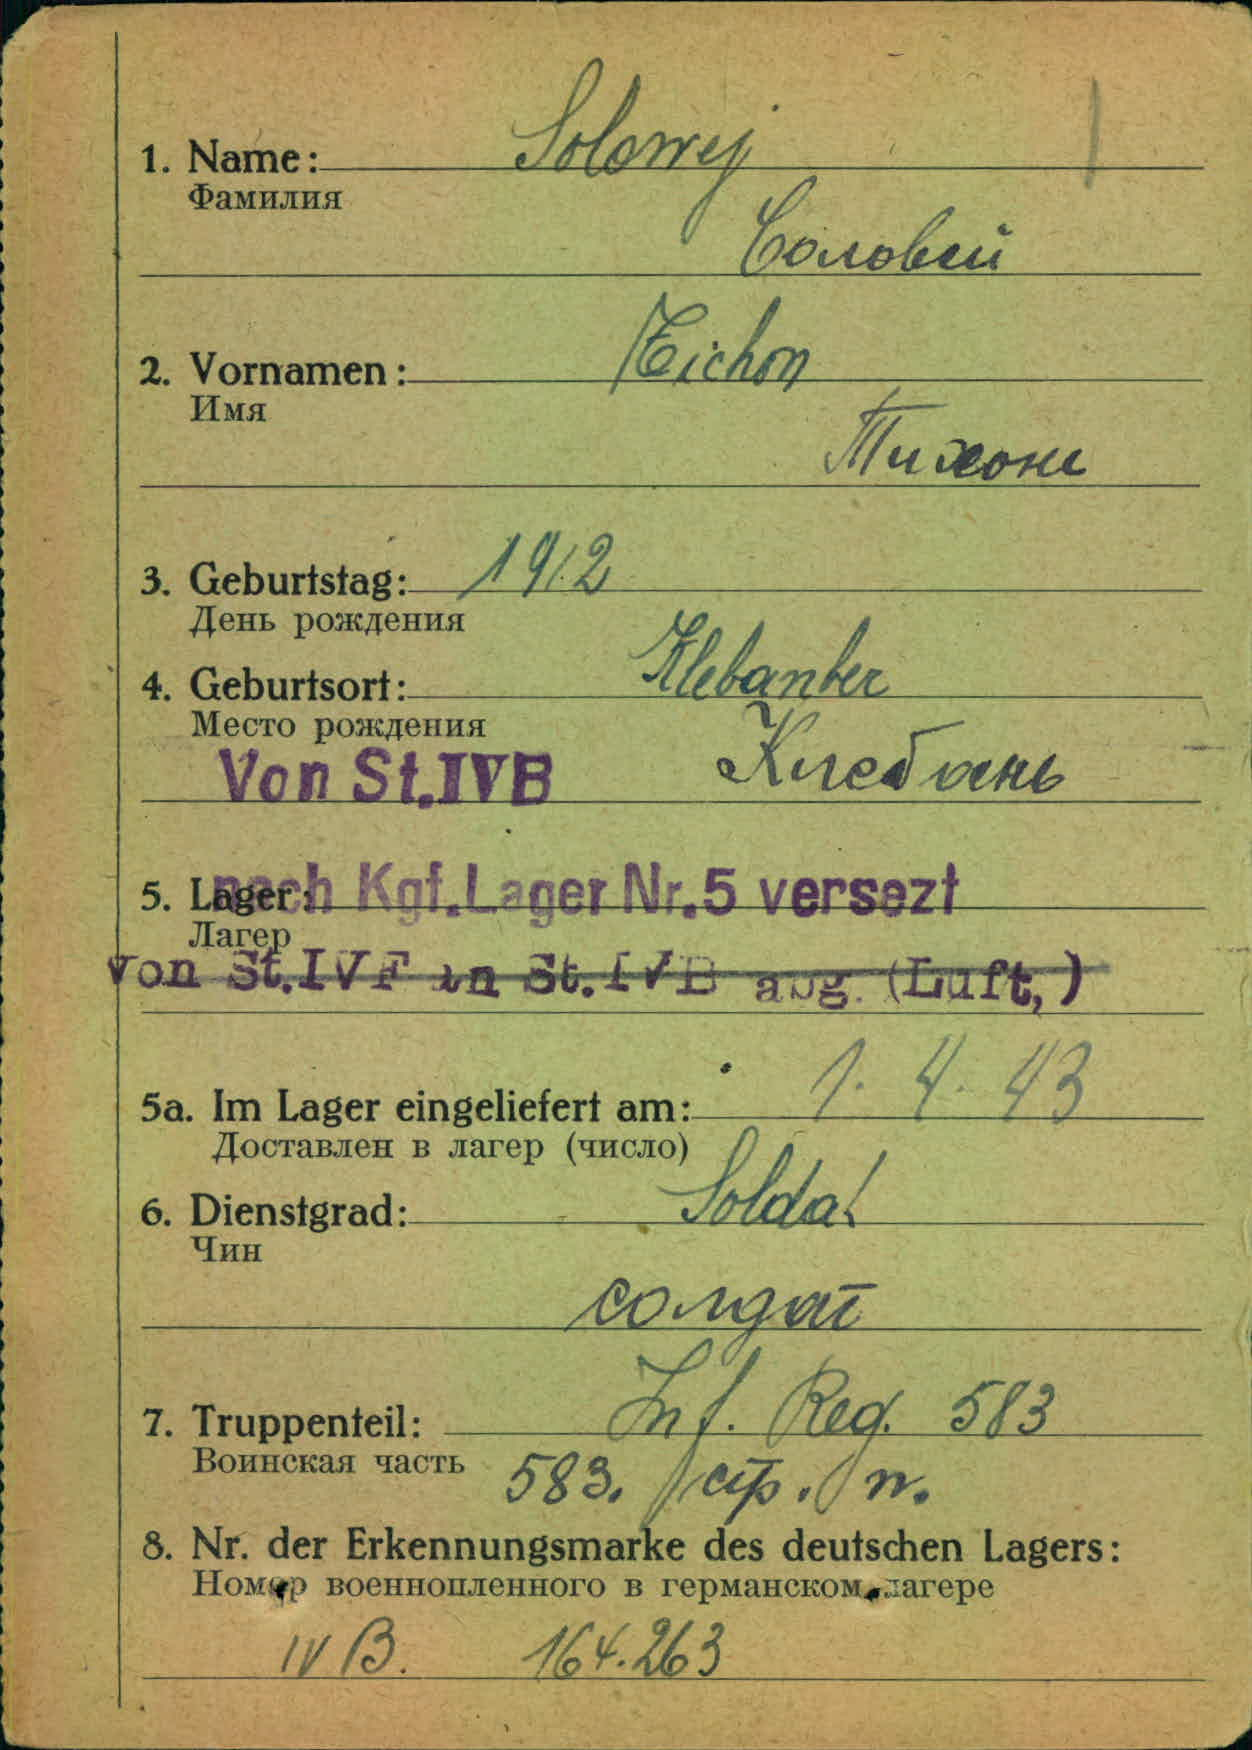 1. Name: Solowej
Фамилия
Соловей
2. Vornamen: Tichon
Имя
Тихон
3. Geburtstag: 1912
День рождения
4. Geburtsort:
Место рождения
Von St.IVB Клебань
5. Lager: nach Kgf.Lager Nr.5 versezt
Лагер
von St.IVF in St.IVB abg. (Luft,)
5a. Im Lager eingeliefert am: 1. 4. 43
Доставлен в лагер (число)
6. Dienstgrad: Soldat
Чин
солдат
7. Truppenteil: Inf. Reg. 583
Воинская часть 583. стр. п.
8. Nr. der Erkennungsmarke des deutschen Lagers:
Номер военнопленного в германском лагере
IV B. 164.263